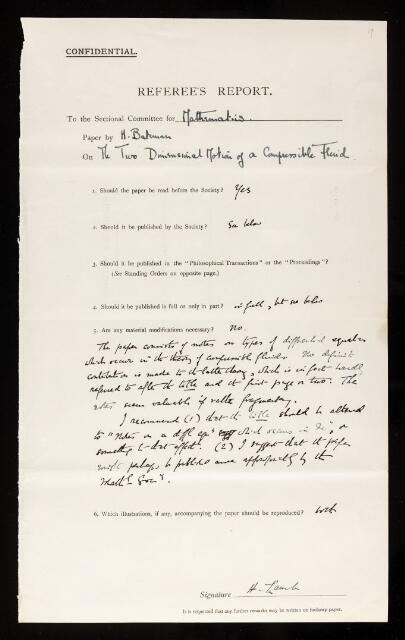 9
CONFIDENTIAL.
REFEREE'S REPORT.
To the Sectional Committee for Mathematics.
Paper by H. Bateman
On The Two Dimensional Motion of a Compressible Fluid.
1. Should the paper be read before the Society? Yes
2. Should it be published by the Society? See below
3. Should it be published in the "Philosophical Transactions" or the "Proceedings"?
(See Standing Orders on opposite page.)
4. Should it be published in full or only in part? in full, but see below
5. Are any material modifications necessary? No.
The paper consists of notes on types of differential equation
which occur in the theory of compressible fluids. No definite
contribution is made to the latter theory, which is in fact hardly
referred to after the title and the first page or two. The
notes seem valuable if rather fragmentary.
I recommend (1) that the title should be altered
to "Notes on a diffl eqn which occurs in the", or
something to that effect. (2) I suggest that the paper
might perhaps be published more appropriately by the
Mathl Socy.
6. Which illustrations, if any, accompanying the paper should be reproduced?
Signature H. Lamb
It is requested that any further remarks may be written on foolscap paper.